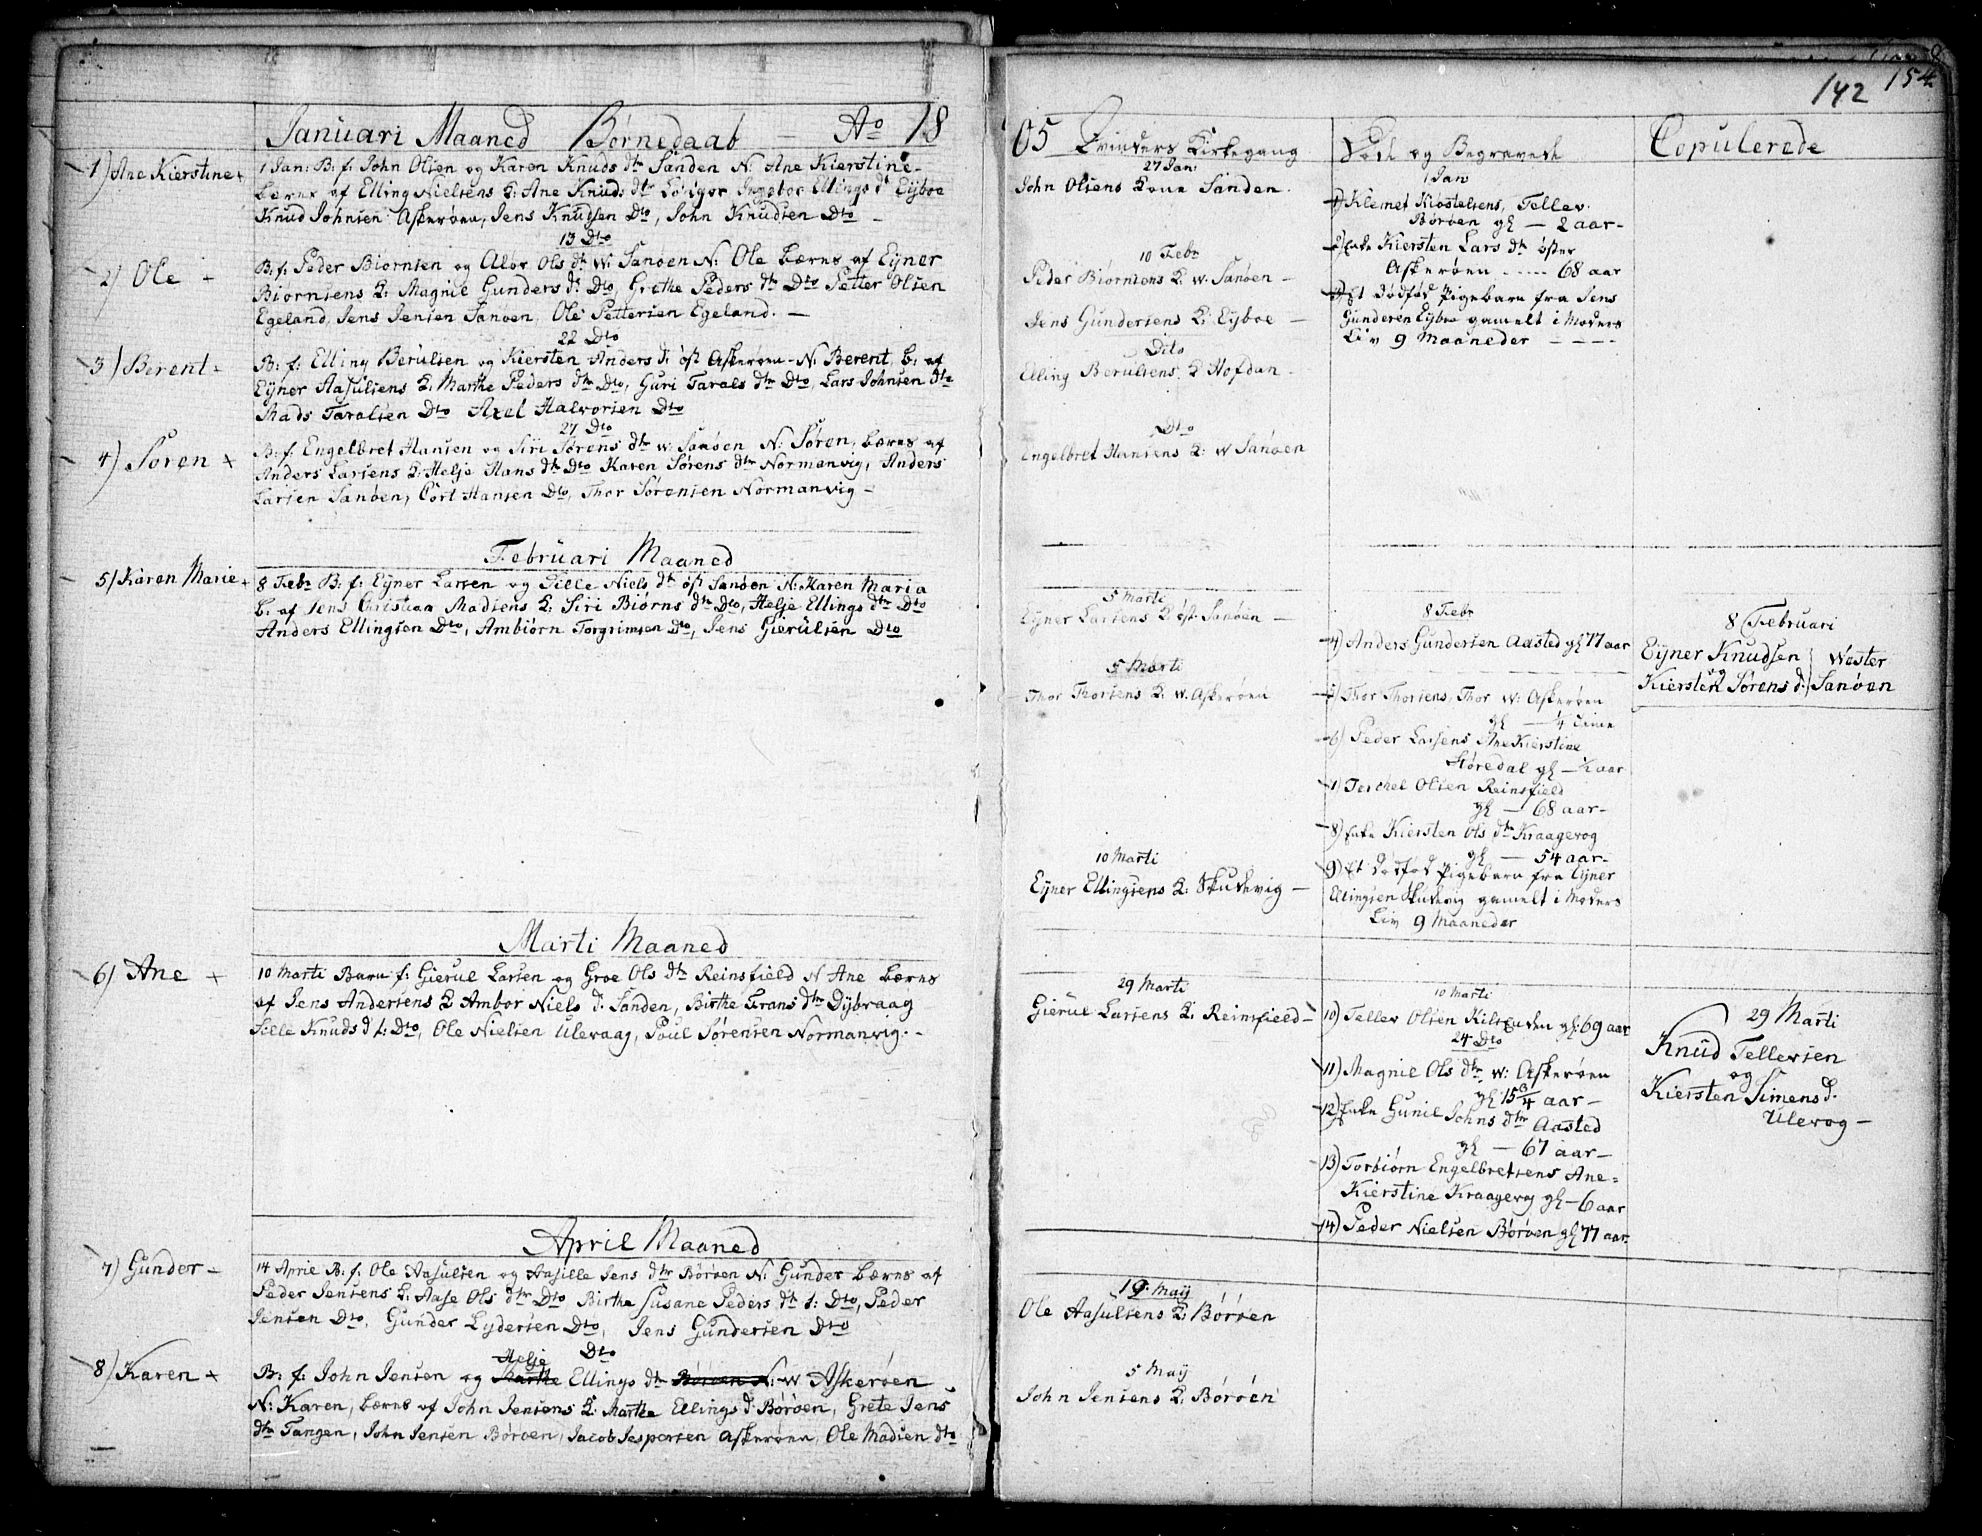 142 154
Januari Maaned Børnedaab — Ao 18
1) Ane Kierstine +
1 Jan: B. f. John Olsen og Karen Knuds dtr Sanden N. Ane Kierstine
bærns af Elling Nielsens K: Ane Knuds dtr Ingebor Ellings dr Eijboe
Knud Johnsen Askerøen, Jens Knudsen Dto, John Knudsen Dto —
13 Dto
2) Ole —
B. f. Peder Biørnsen og Alov Ols dtr W: Sanøen N: Ole bærns af Eijner
Biørnsens K: Magnil Gunders dr Dto, Grethe Peders dtr Dto Petter Olsen
Egeland, Jens Jensen Sanøen, Ole Pettersen Egeland. —
22 Dto
3) Berent —
B. f. Elling Berulsen og Kiersten Anders d. øst Askerøen — N. Berent, b. af
Eijner Aasulsens K: Marthe Peders dtr Dto, Guri Tarals dtr Dto, Lars Johnsen Dto
Mads Taralsen Dto Axel Halvorsen Dto
27 Dto
4) Søren +
B. f. Engelbret Hansen og Siri Sørens dtr w. Sanøen N: Søren, bærns af
Anders Larsens K: Helje Hans dtr Dto Karen Sørens dtr Normanvig, Anders
Larsen Sanøen, Cort Hansen Dto, Thor Sørensen Normanvig —
Februari Maaned
5) Karen Marie +
8 Febr B. f. Eijner Larsen og Sille Niels dtr øst Sanøen N: Karen Maria
b. af Jens Christian Madsens K: Siri Biørns dtr Dto, Helje Ellings dtr Dto
Anders Ellingsen Dto, Ambiørn Torgrimsen Dto, Jens Gierulsen Dto
Marti Maaned
6) Ane +
10 Marti Barn f. Gierul Larsen og Groe Ols dtr Reinsfield N Ane bærns
af Jens Andersens K Ambor Niels d: Sanden, Birthe Frans dtr Dijbvaag
Sille Knuds d t: Dto, Ole Nielsen Ulevaag, Poul Sørensen Normanvig. —
April Maaned
7) Gunder —
14 April B. f. Ole Aasulsen og Aasille Jens dtr Børøen N: Gunder bærns af
Peder Jensens K: Aase Ols dtr Dto Birthe Susane Peders dtr s: Dto, Peder
Jensen Dto, Gunder Lydersen Dto, Jens Gundersen Dto
Dto
8) Karen +
Helje
B. f. John Jensen og Marthe Ellings dtr Børøen N: W Askerøen
N: Karen, bærns af John Jensens K: Marthe Ellings d Børøen, Grete Jens
dtr Tangen, John Jensen Børøen, Jacob Jespersen Askerøen, Ole Madsen Dto
05 Qvinders Kirkegang
27 Jan:
John Olsens Kone Sanden.
10 Febr
Peder Biørnsens K. w. Sanøen —
Jens Gundersens K: Eijboe —
Dito
Elling Berulsens K Hofdan.
Dto
Engelbret Hansens K: w Sanøen
5 Marti
Eijner Larsens K øst Sanøen —
5 Marti
Thor Thorsens K: w. Askerøen
10 Marti
Eijner Ellingsens K: Skudevig —
29 Marti
Gierul Larsens K: Reinsfield —
19 Maij
Ole Aasulsens K: Børøen
5 Maij
John Jensens K: Børøen
Døde og Begravede
1 Jan
1) Klemet Tellev.
Børøen gl — 2 aar —
2) Enke Kiersten Lars dtr øster
Askerøen ..... 68 aar
3) Et dødfød Pigebarn fra Jens
Gundersen Eijboe gamelt i Moders
Liv 9 Maaneder — — —
8 Febr
4) Anders Gundersen Aasted gl 77 aar
5) Thor Thorsens, Thor w: Askerøen
gl — 1/4 Time
6) Peder Larsens Ane Kierstine
Støredal gl — 1/2 aar
7) Terchel Olsen Reinsfield
gl — 68 aar —
8) Enke Kiersten Ols dtr Kraagevog
gl — 54 aar —
9) Et dødfød Pigebarn fra Eijner
Ellingsen Skudevig gamelt i Moders
Liv 9 Maaneder
10 Marti
10) Tellev Olsen gl: 69 aar
24 Dto
11) Magnil Ols dtr w: Askerøen
gl 15 3/4 aar —
12) Enke Gunil Johns dtr Aasted
gl — 67 aar —
13) Torbiørn Engelbretsens Ane=
Kierstine Kraagevog gl — 6 aar
14) Peder Nielsen Børøen gl 77 aar
Copulerede
8 Februari
Eijner Knudsen Wester
og
Kiersten Sørens d. Sanøen
29 Marti
Knud Tellevsen
og
Kiersten Simens d.
Ulevog —